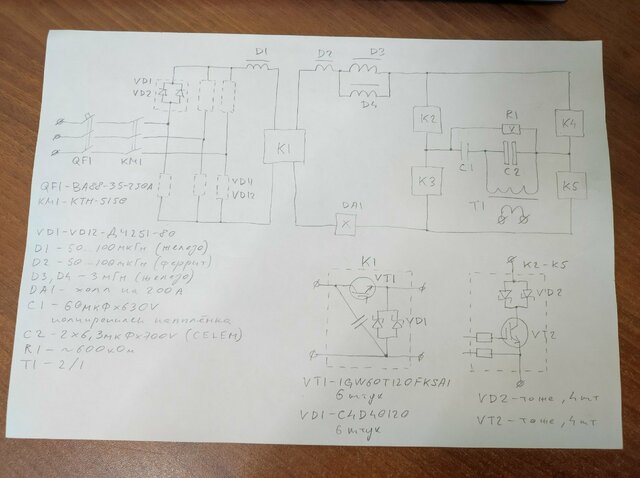 D1
D2
D3
D4
VD1
VD2
QF1
KM1
VD4
VD12
K1
K2
K3
K4
K5
R1
V
C1
C2
T1
DA1
X
QF1-ВА88-35-250А
KM1-КТН-5150
VD1-VD12-Д4251-80
D1 - 50...100мкГн (железо)
D2 - 50...100мкГн (феррит)
D3, D4 - 3мГн (железо)
DA1 - холл на 200А
C1 - 60мкФх630V
C2 - 2х6,3мкФх700V (CELEM)
R1 - ~600кОм
T1 - 2/1
K1
VT1
VD1
VT1-IGW60T120FKSA1
6 штук
VD1-C4D40120
6 штук
K2-K5
VD2
VT2
VD2-тоже, 4шт
VT2-тоже, 4шт